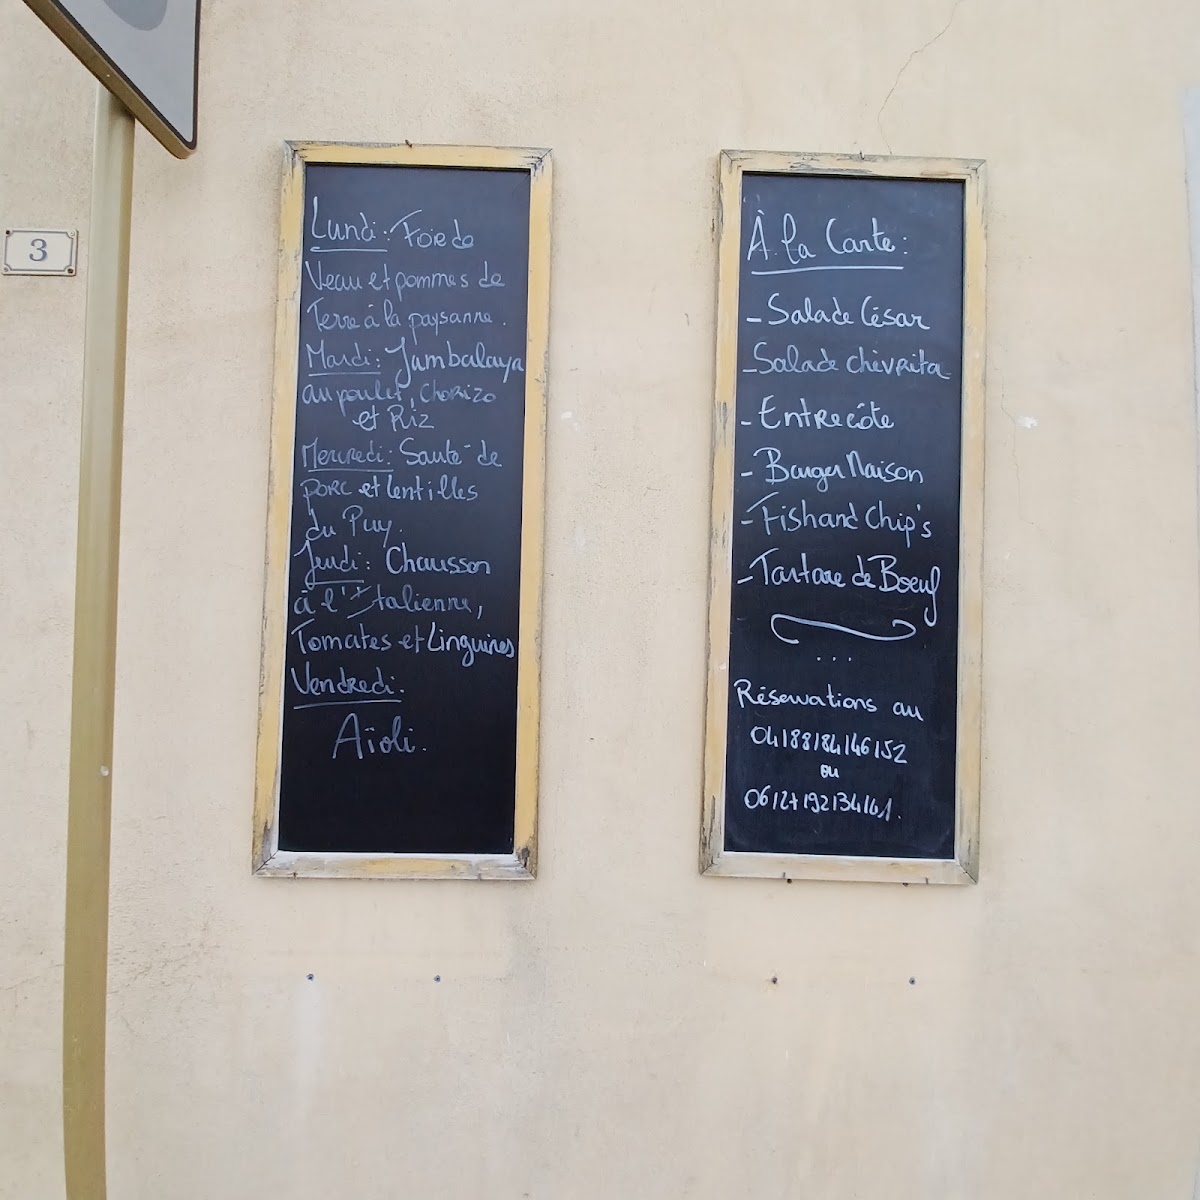 3
Lundi : Foie de
Veau et pommes de
Terre à la paysanne.
Mardi : Jambalaya
au poulet, Chorizo
et Riz
Mercredi : Sauté de
porc et lentilles
du Puy.
Jeudi : Chausson
à l'Italienne,
Tomates et Linguines
Vendredi.
Aïoli.
À la Carte :
- Salade César
- Salade chèvrita
- Entrecôte
- Burger Maison
- Fish and Chip's
- Tartare de Boeuf
...
Réservations au
04/88/84/46/52
ou
06/27/92/34/41.